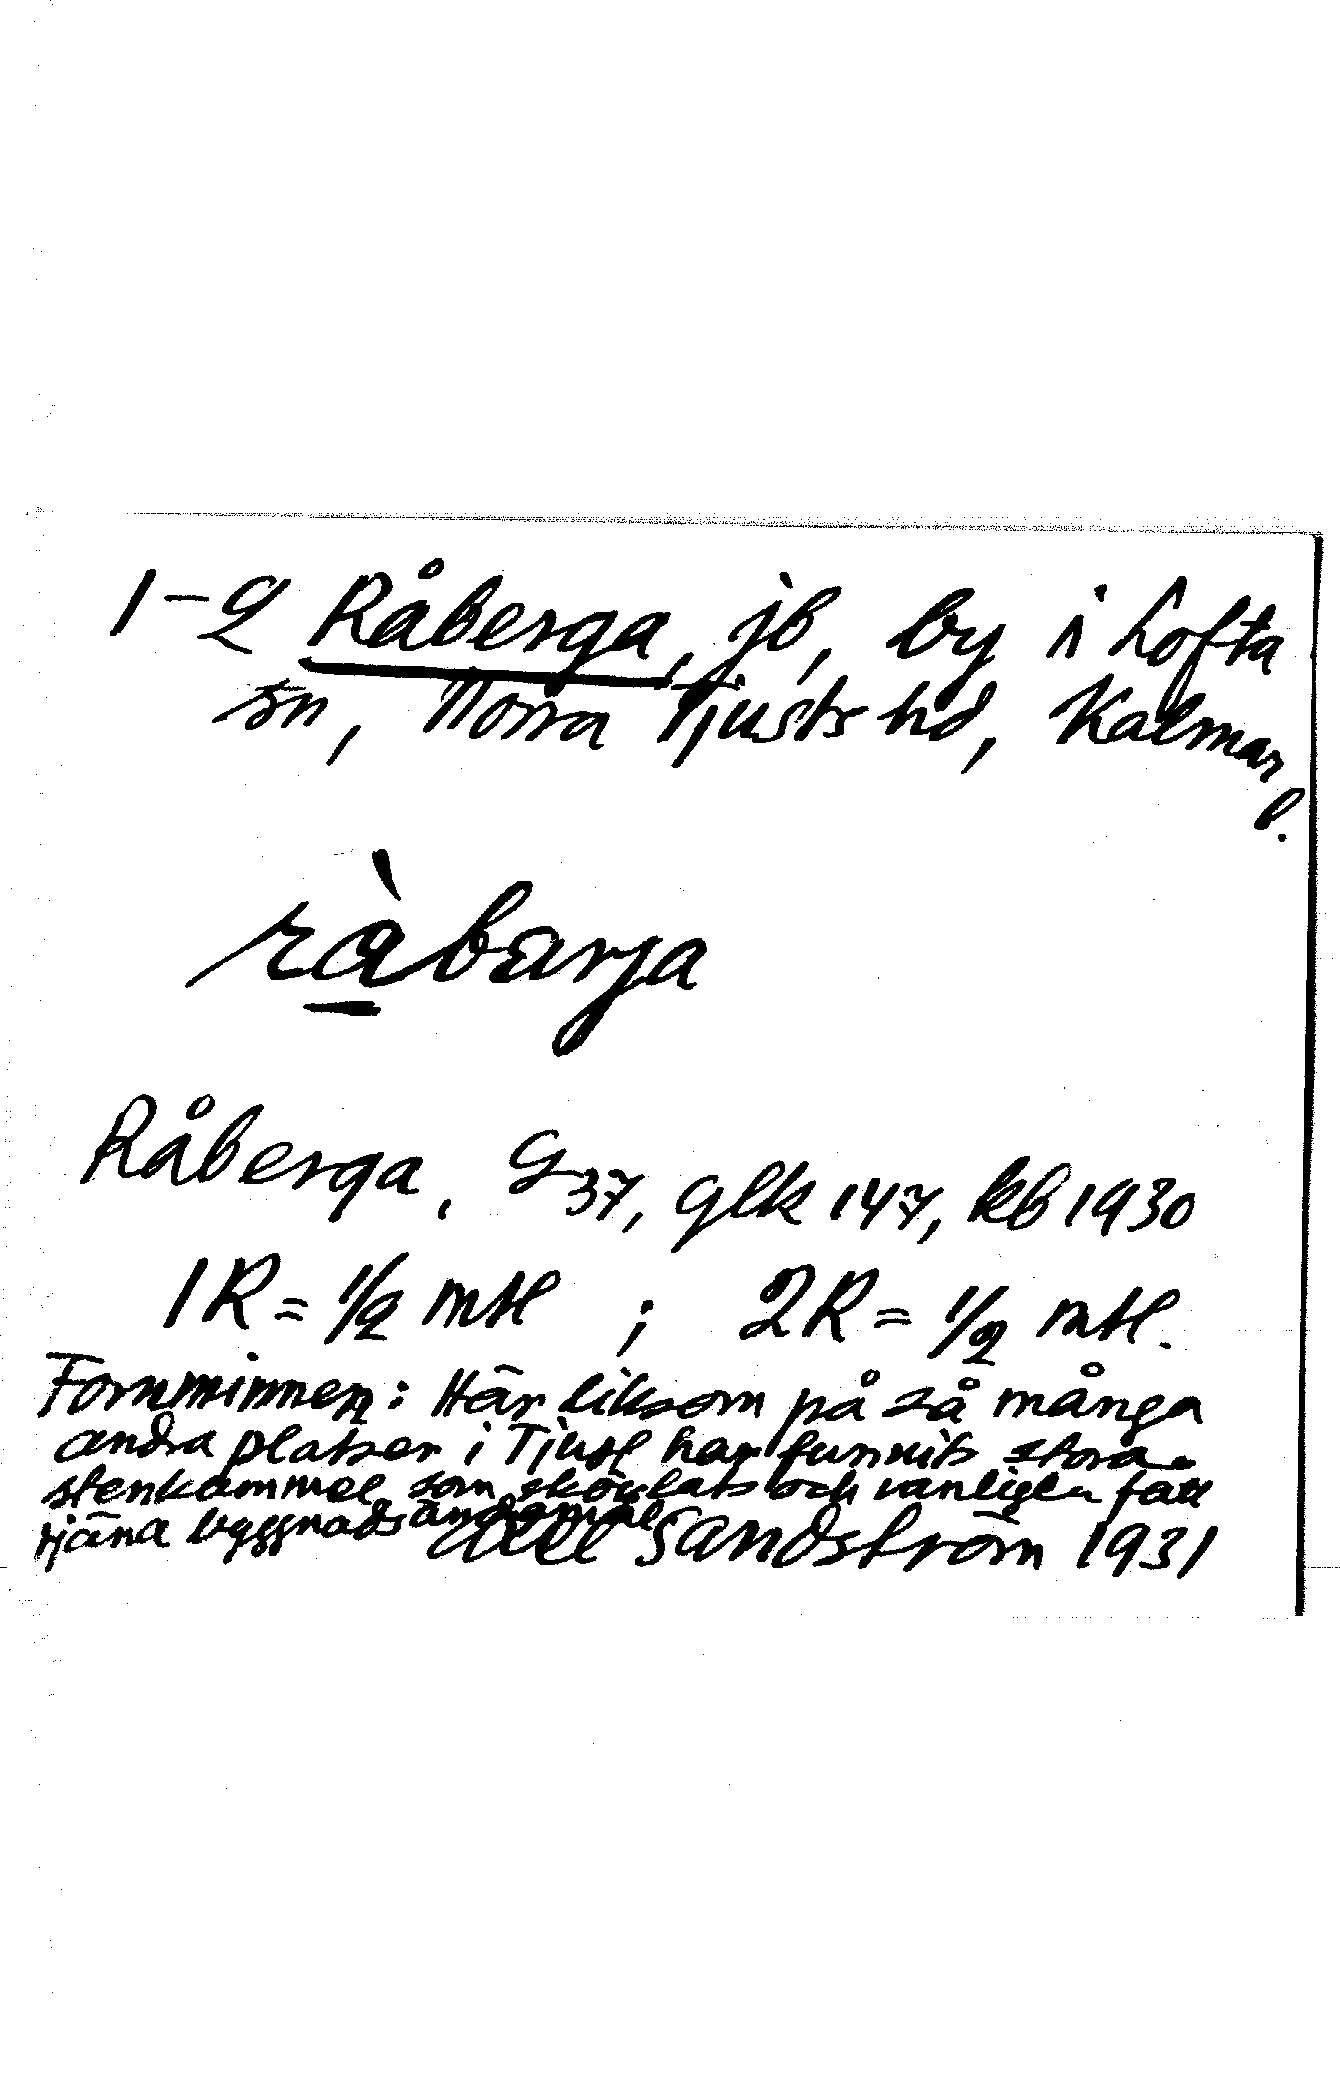 1-2 Råberga, jb, by i Lofta
sn, Norra Tjusts hd, Kalmar
l.
ràbarja
Råberga, G37, glk 147, kb 1930
1R = 1/2 mtl ; 2R = 1/2 mtl.
Fornminnen: Här liksom på så många
andra platser i Tjust har funnits stora
stenkummel som skövlats och vanligen fått
tjäna byggnadsändamål
Axel Sandström 1931